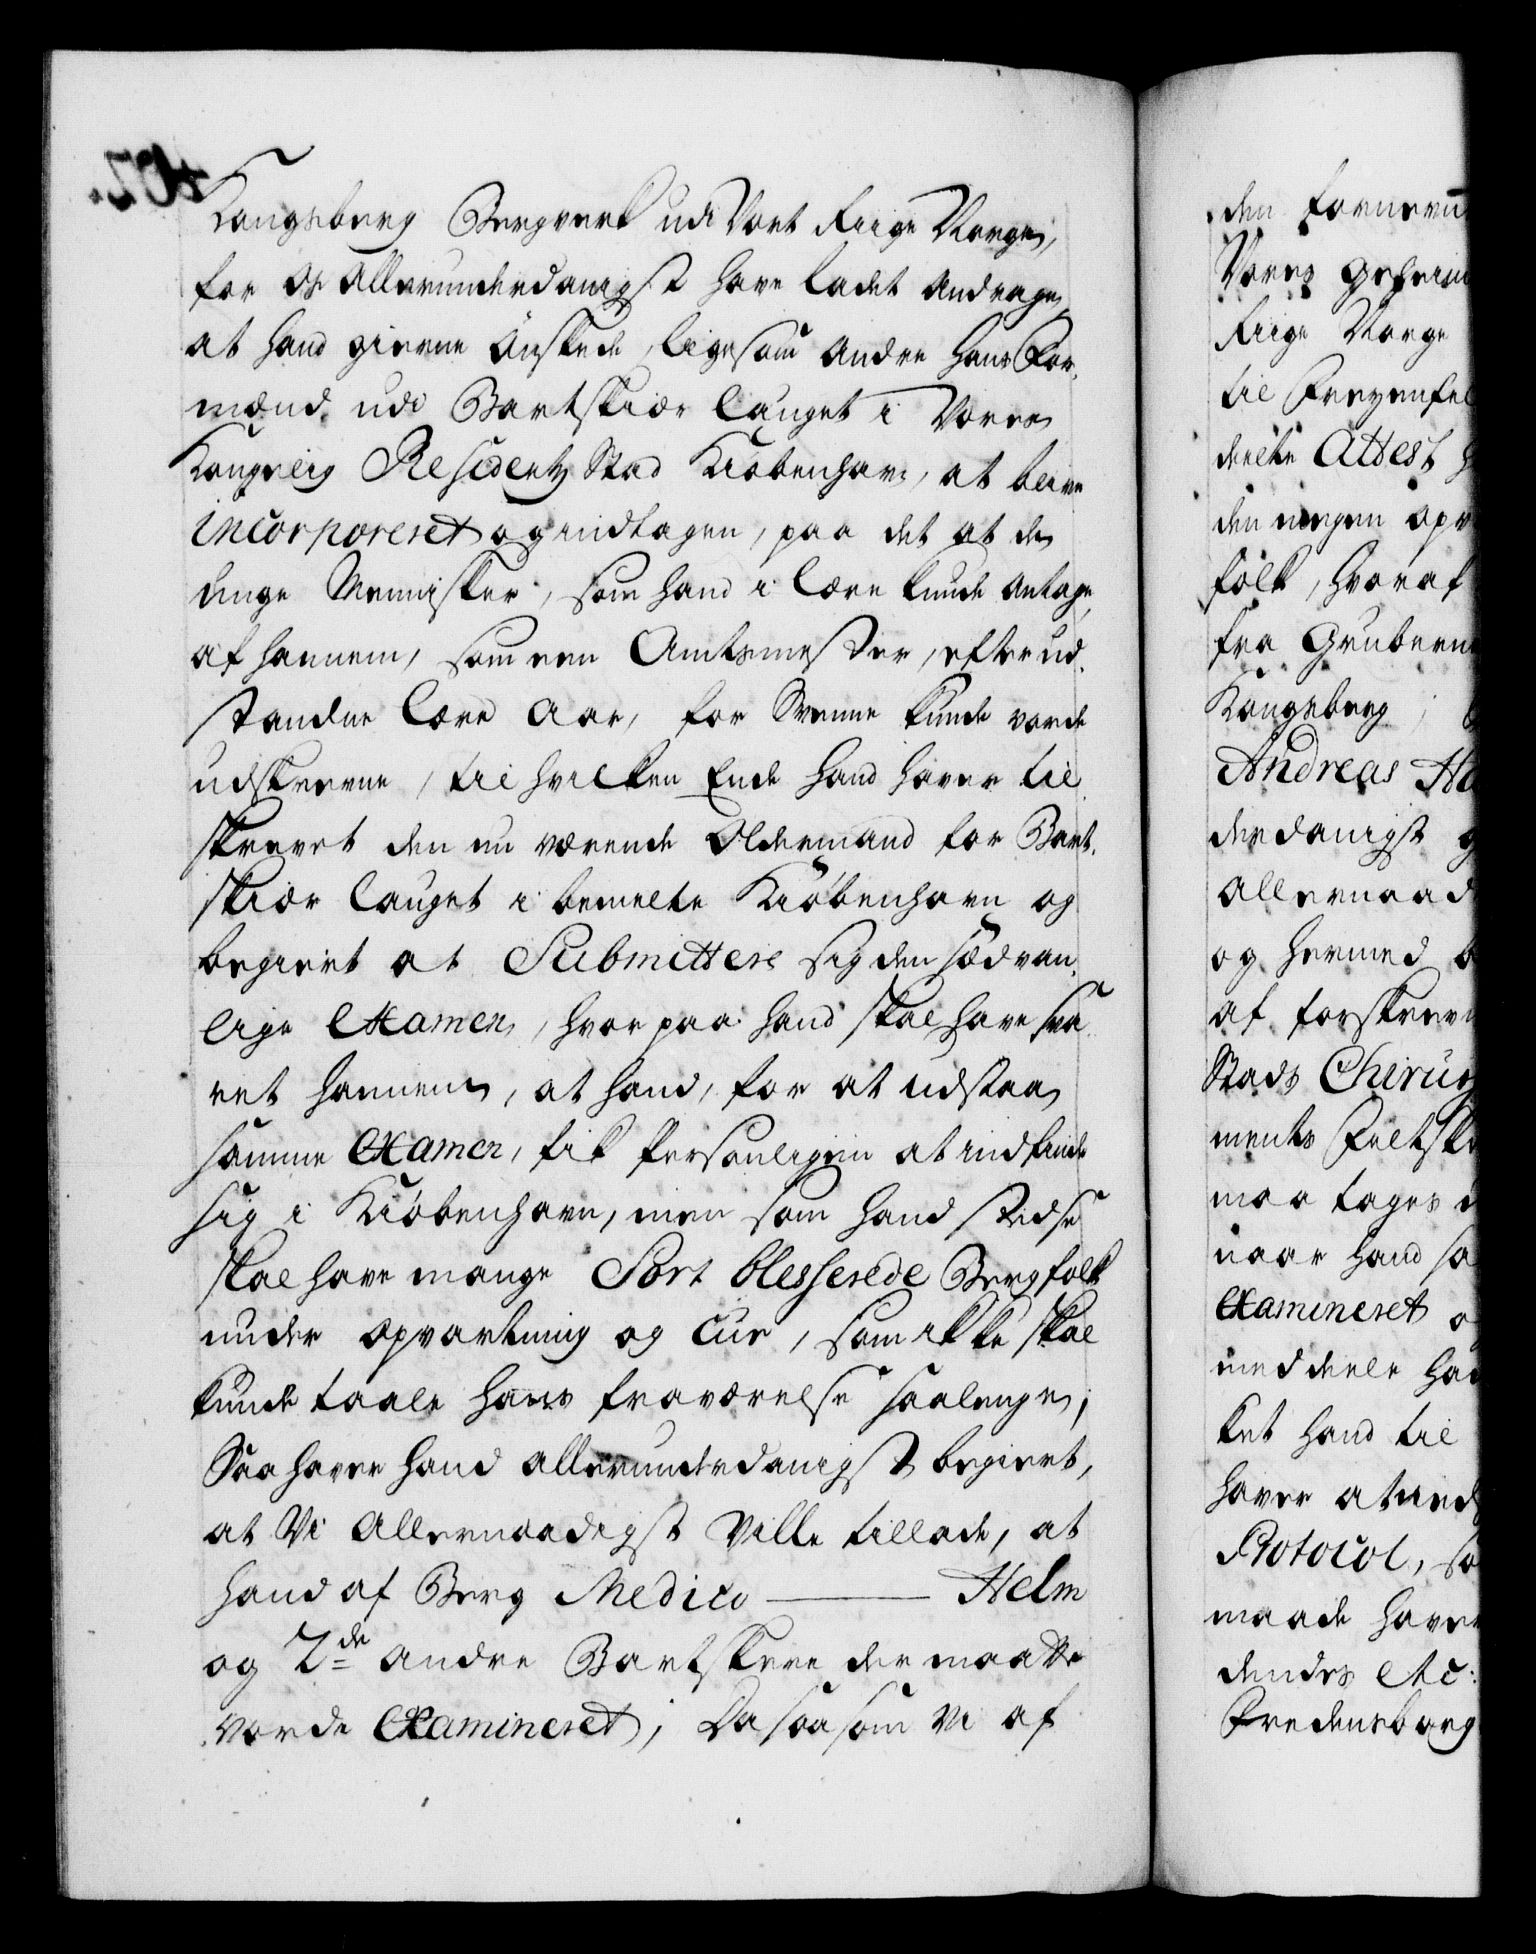 Kongsberg Bergverk udi Vort Riige Norge,
for Os allerunderdanigst have ladet andrage,
at hand gierne ønskede, ligesom andre hans For-
mænd udi Bartskiær Lauget i Vores
Kongelig Residentz Stad Kiøbenhavn, at blive
incorporeret og indtagen, paa det at de
unge Mennisker, som hand i Lære kunde antage,
af hannem, som een Amtsmester, efter ud-
standne Lære Aar, for Svenne kunde vorde
udskrevne, til hvilken Ende hand haver til
skrevet den nu værende Oldermand for Bart-
skiær Lauget i bemelte Kiøbenhavn og
begiert at Submittere sig den sædvan-
lige Examen, hvorpaa hand skal have sva-
ret hannem, at hand, for at udstaa
samme Examen, fik Personligen at indfinde
sig i Kiøbenhavn, men som hand stedse
skal have mange Sort blesserede Bergfolk
under opvartning og Cur, som ikke skal
kunde taale hans fraværelse saalenge;
Saa haver hand allerunderdanigst begiert,
at Vi Allernaadigst Ville tillade, at
hand af Berg Medico ——— Helm
og 2de andre Bartskere der maatte
vorde Examineret; Da saasom Vi af
den fornevn
Vores Geheim
Riige Norge
til Freyenfel
deelte Attest
den megen opv
folk, hvoraf
fra Gruberne
Kongsberg,
Andreas
derdanigst
Allernaad
og hermed
af forskrev
Stads Chirur
ments Feltsk
maa tages
naar hand sa
Examineret
meddeele ha
ket hand til
haver at ind
Protocol, so
maade have
dendes etc:
Fredensborg
402.